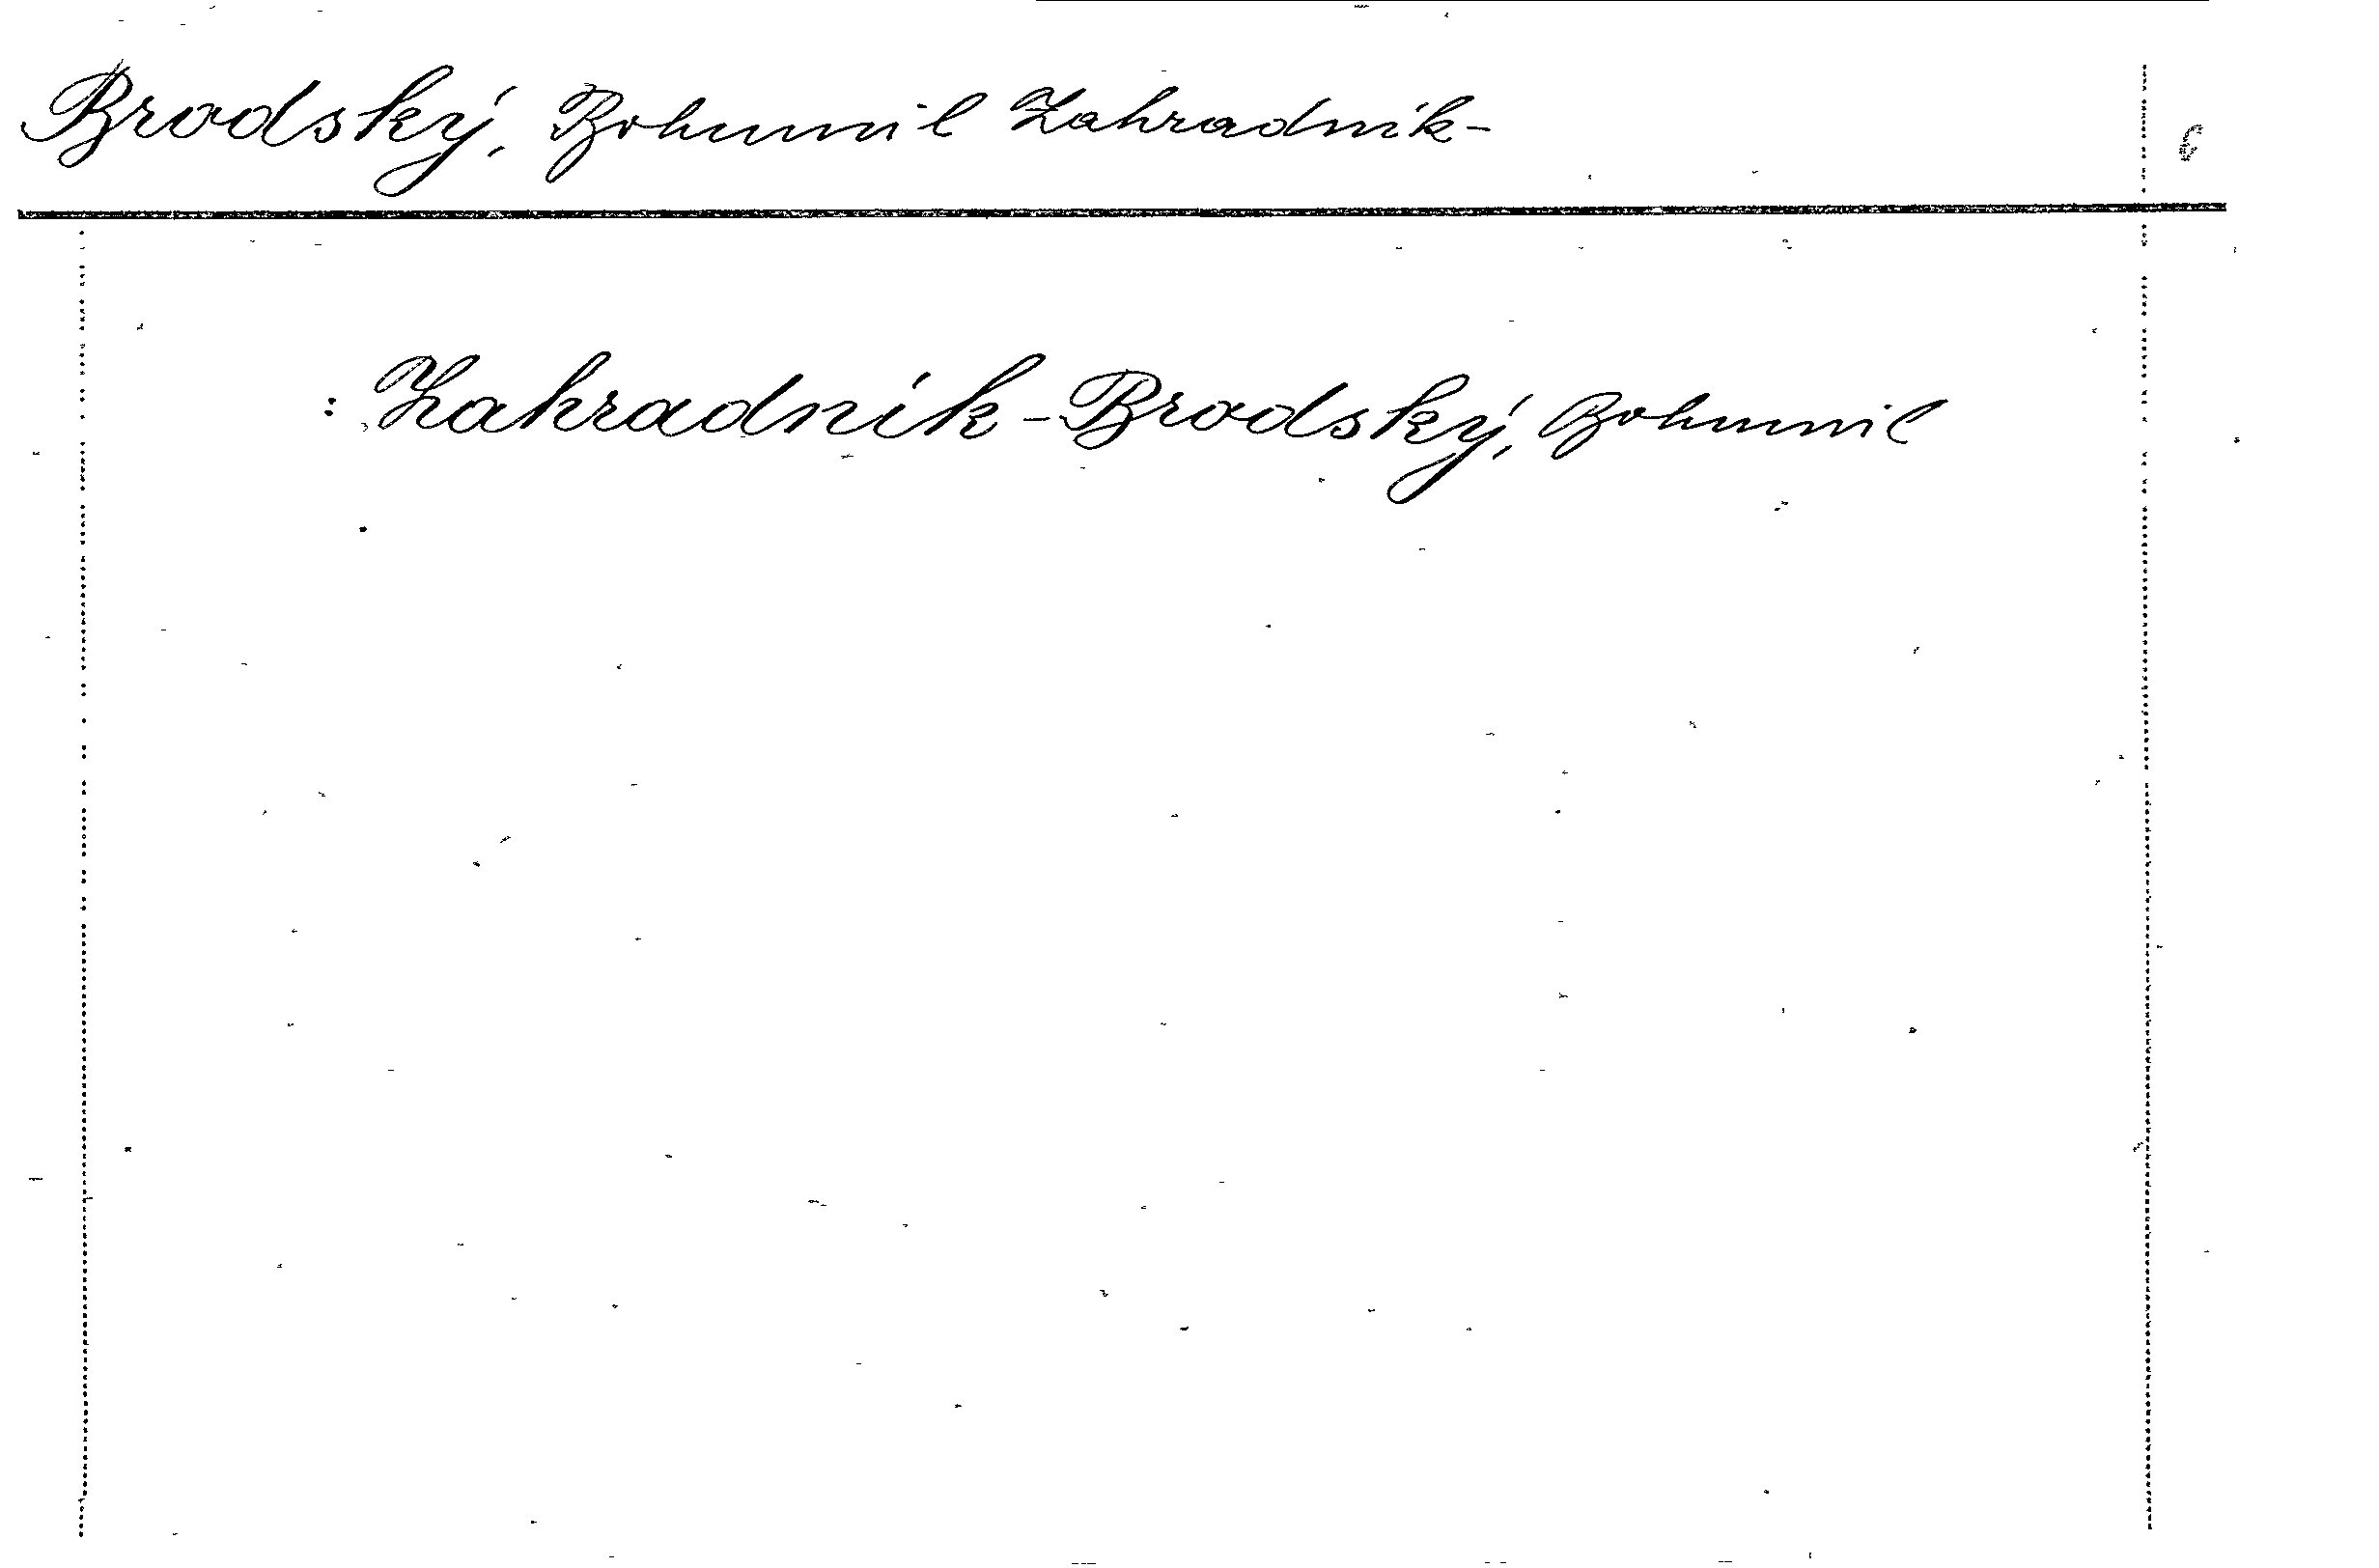 Brodský, Bohumil Zahradník-
: Zahradník-Brodský, Bohumil